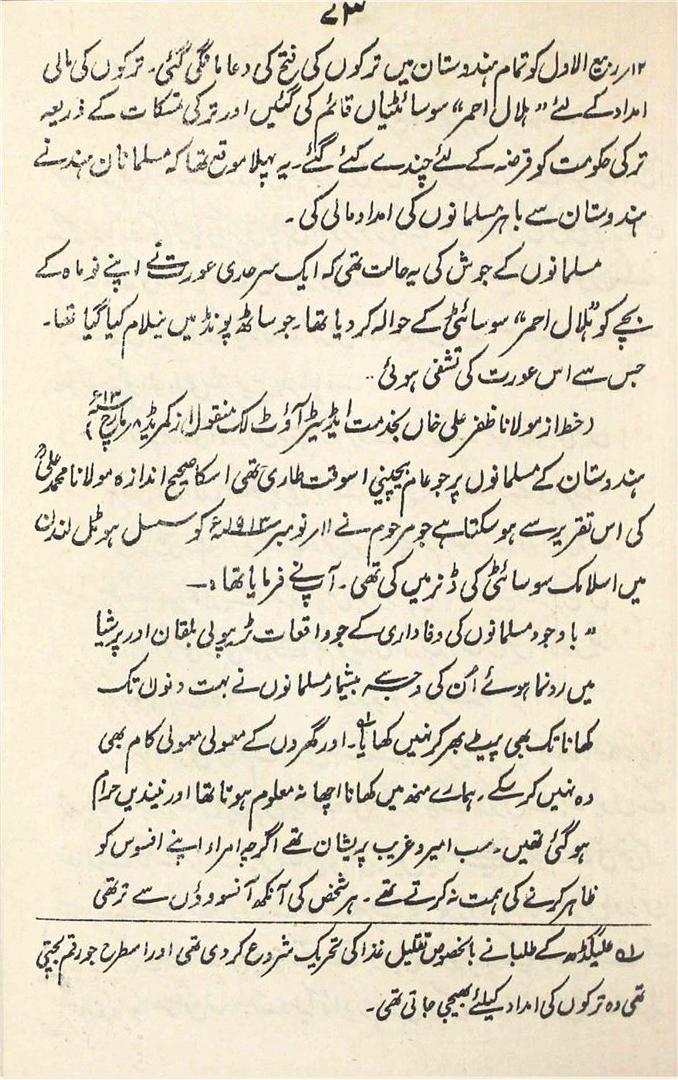 ۷۳
۱۲؍ ربیع الاول کو تمام ہندوستان میں ترکوں کی فتح کی دعا مانگی گئی۔ ترکوں کی مالی
امداد کے لئے "ہلال احمر" سوسائٹیاں قائم کی گئیں اور ترکی تمسکات کے ذریعہ
ترکی حکومت کو قرضہ کے لئے چندے کئے گئے۔ یہ پہلا موقع تھا کہ مسلمانان ہند نے
ہندوستان سے باہر مسلمانوں کی امداد مالی کی۔
مسلمانوں کے جوش کی یہ حالت تھی کہ ایک سرحدی عورت نے اپنے نو ماہ کے
بچے کو "ہلال احمر" سوسائٹی کے حوالہ کر دیا تھا۔ جو ساٹھ پونڈ میں نیلام کیا گیا تھا۔
جس سے اس عورت کی تشفی ہوئی۔
(خط از مولانا ظفر علی خاں بخدمت ایڈیٹر آؤٹ لک منقول از کمریڈ ۸ مارچ ۱۳ء)
ہندوستان کے مسلمانوں پر جو عام بےچینی اسوقت طاری تھی اسکا صحیح اندازہ مولانا محمد علی
کی اس تقریر سے ہو سکتا ہے جو مرحوم نے ۱۱ر نومبر ۱۹۱۳ء کو سسل ہوٹل لندن
میں اسلامک سوسائٹی کی ڈنر میں کی تھی۔ آپ نے فرمایا تھا :—
"باوجود مسلمانوں کی وفاداری کے جو واقعات ٹریپولی بلقان اور پرشیا
میں رونما ہوئے اُن کی وجہ سے بیشمار مسلمانوں نے بہت دنوں تک
کھانا تک بھی پیٹ بھر کر نہیں کھایا۔ اور گھروں کے معمولی معمولی کام بھی
وہ نہیں کر سکے۔ ہمارے منھ میں کھانا اچھا نہ معلوم ہوتا تھا اور نیندیں حرام
ہو گئی تھیں۔ سب امیر و غریب پریشان تھے اگرچہ امراء اپنے افسوس کو
ظاہر کرنے کی ہمت نہ کرتے تھے۔ ہر شخص کی آنکھ آنسووؤں سے تر تھی
لہ علیگڈھ کے طلبا نے بالخصوص تقلیل غذا کی تحریک شروع کر دی تھی اور اسطرح جو رقم بچتی
تھی وہ ترکوں کی امداد کیلئے بھیجی جاتی تھی۔